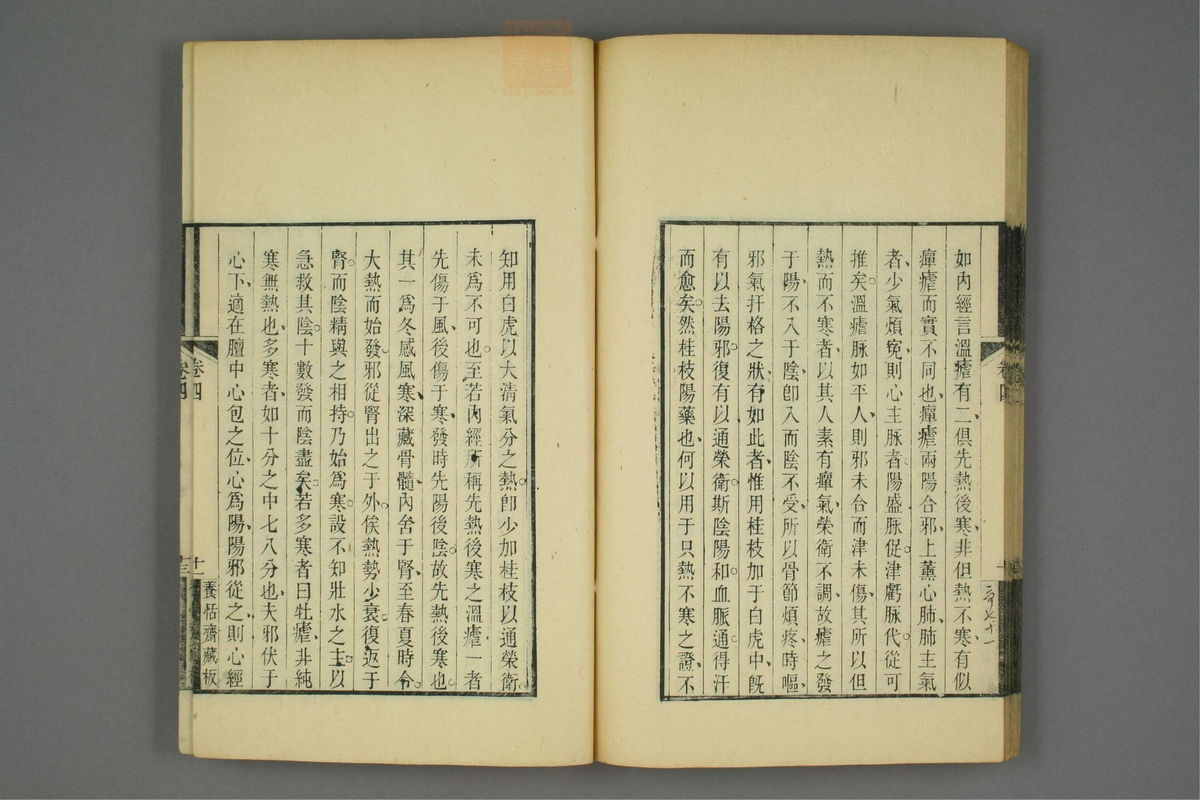 如內經言溫瘧有二俱先熱後寒非但熱不寒有似
癉瘧而實不同也癉瘧兩陽合邪上薰心肺肺主氣
者少氣煩寃則心主脉者陽盛脉促津虧脉代從可
推矣溫瘧脉如平人則邪未合而津未傷其所以但
熱而不寒者以其人素有癉氣榮衛不調故瘧之發
于陽不入于陰卽入而陰不受所以骨節煩疼時嘔
邪氣扞格之狀有如此者惟用桂枝加于白虎中旣
有以去陽邪復有以通榮衛斯陰陽和血脈通得汗
而愈矣然桂枝陽藥也何以用于只熱不寒之證不
卷四
知用白虎以大清氣分之熱卽少加桂枝以通榮衛
未爲不可也至若內經所稱先熱後寒之溫瘧一者
先傷于風後傷于寒發時先陽後陰故先熱後寒也
其一爲冬感風寒深藏骨髓內舍于腎至春夏時令
大熱而始發邪從腎出之于外俟熱勢少衰復返于
腎而陰精與之相持乃始爲寒設不知壯水之主以
急救其陰十數發而陰盡矣若多寒者曰牡瘧非純
寒無熱也多寒者如十分之中七八分也夫邪伏于
心下適在膻中心包之位心爲陽陽邪從之則心經
卷四
十一
養恬齋藏板
卷四
十三